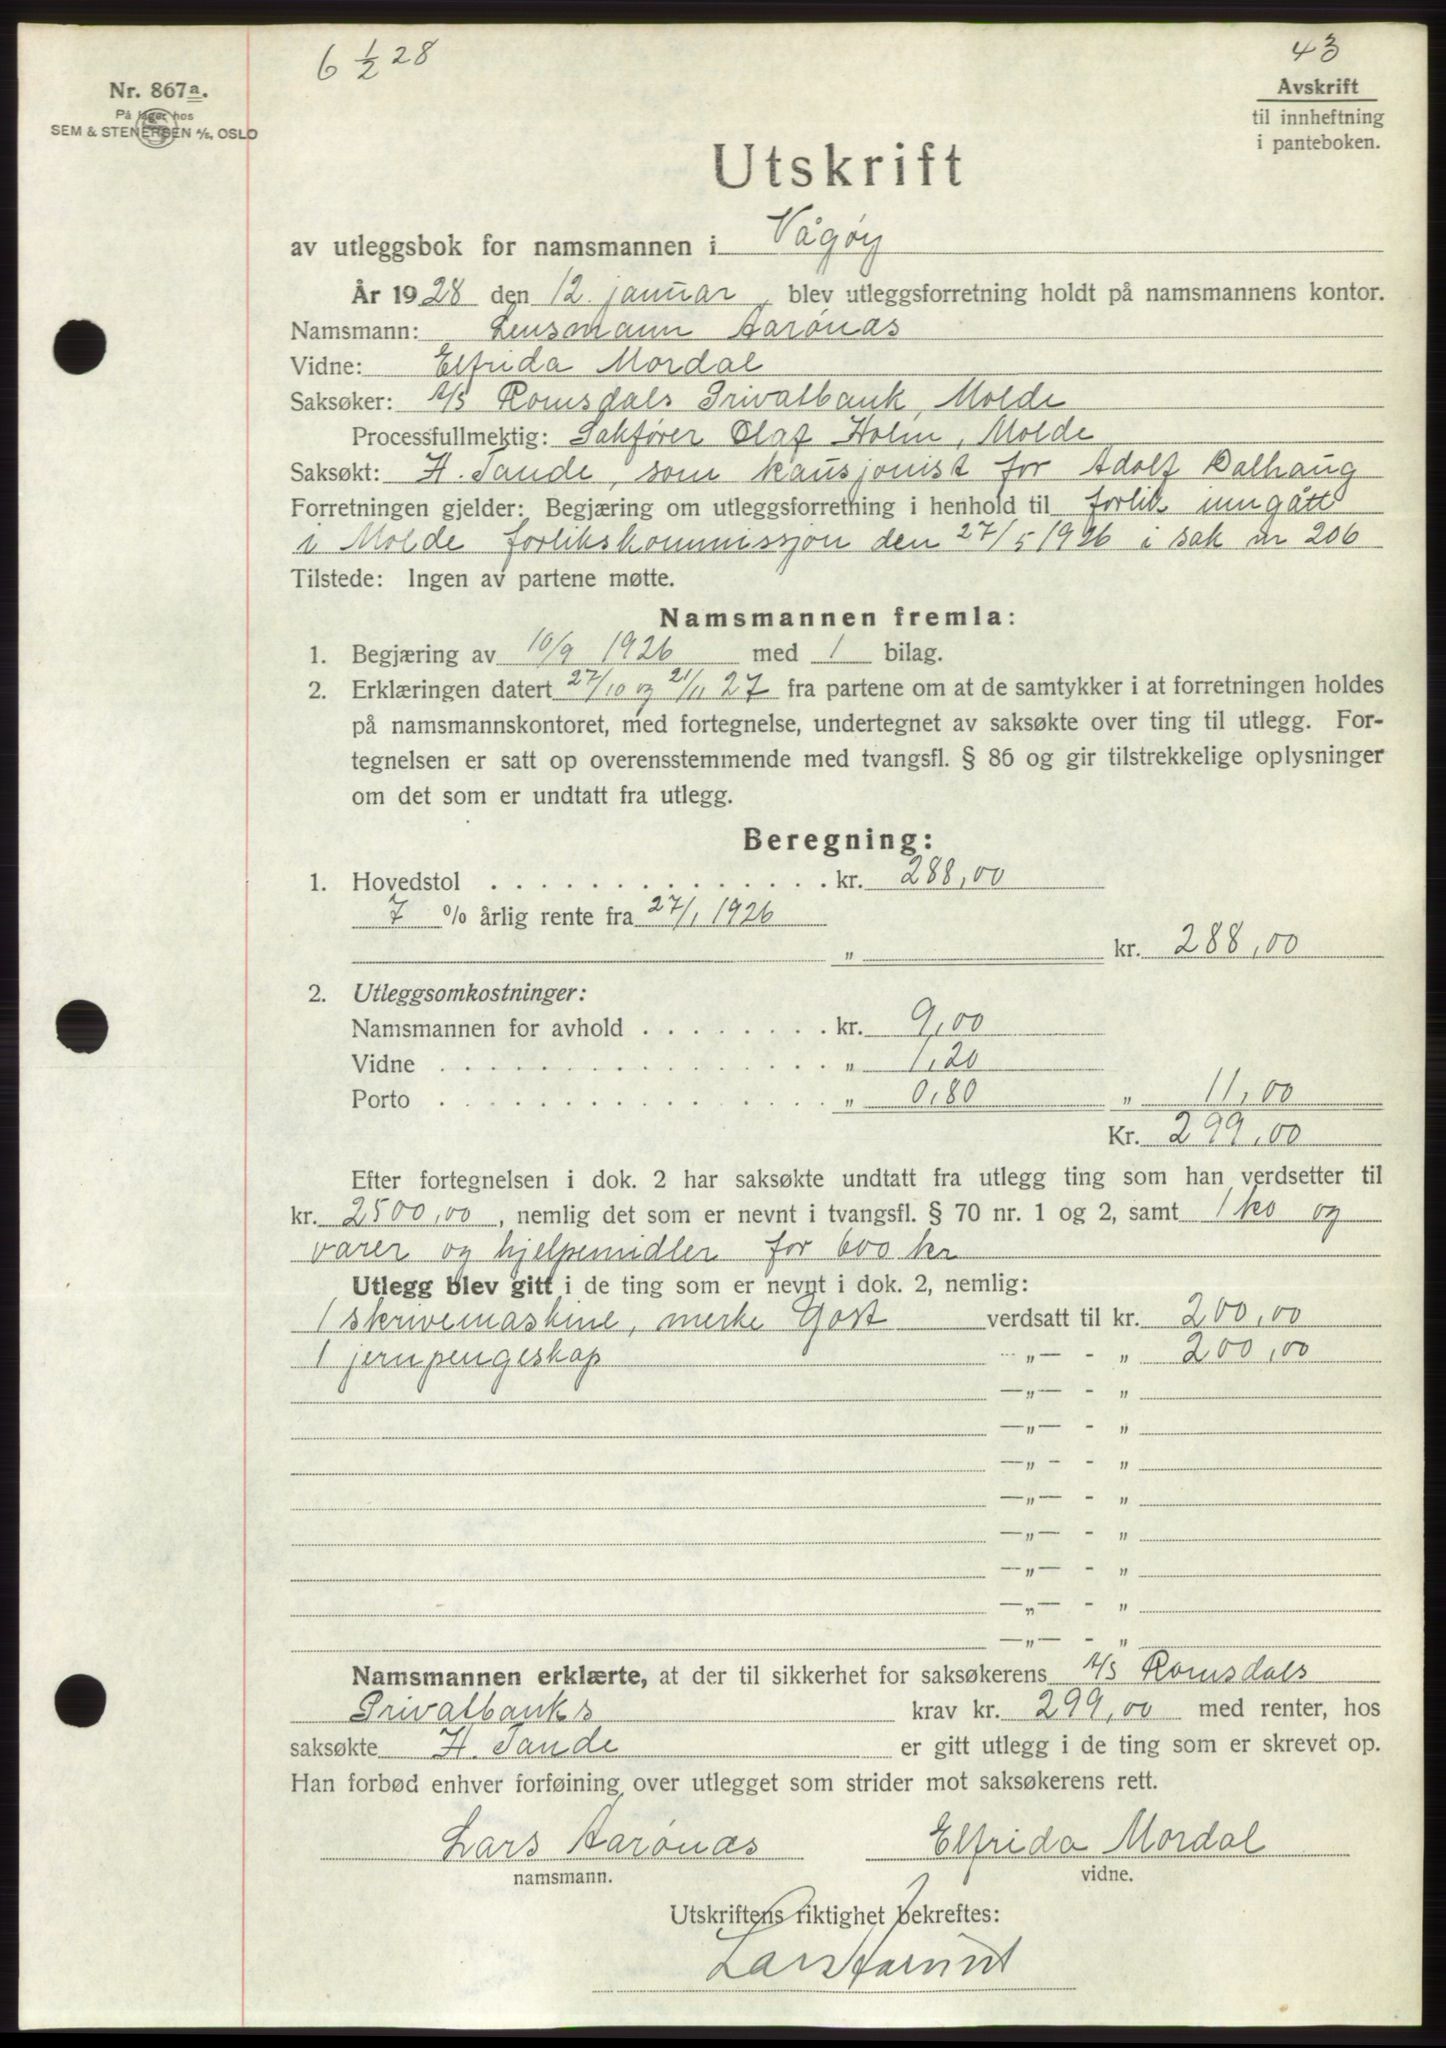 6 1/2 28
43
Nr. 867a.
På lager hos
SEM & STENERSEN A/S, OSLO
Avskrift
til innheftning
i panteboken.
Utskrift
av utleggsbok for namsmannen i Vågøy
År 1928 den 12. januar, blev utleggsforretning holdt på namsmannens kontor.
Namsmann: Lensmann Aarønæs
Vidne: Elfrida Mordal
Saksøker: A/S Romsdals Privatbank, Molde
Processfullmektig: Sakfører Olaf Holm, Molde
Saksøkt: H. Tande, som kausjonist for Adolf Dalhaug
Forretningen gjelder: Begjæring om utleggsforretning i henhold til forlik inngått
i Molde forlikskommissjon den 27/5 1926 i sak nr 206
Tilstede: Ingen av partene møtte.
Namsmannen fremla:
1. Begjæring av 10/9 1926 med 1 bilag.
2. Erklæringen datert 27/10 og 21/11 27 fra partene om at de samtykker i at forretningen holdes
på namsmannskontoret, med fortegnelse, undertegnet av saksøkte over ting til utlegg. For-
tegnelsen er satt op overensstemmende med tvangsfl. § 86 og gir tilstrekkelige oplysninger
om det som er undtatt fra utlegg.
Beregning:
1. Hovedstol . . . . . . . . . . . . . . kr. 288,00
7 % årlig rente fra 27/1 1926
" kr. 288,00
2. Utleggsomkostninger:
Namsmannen for avhold . . . . . . . . kr. 9,00
Vidne . . . . . . . . . . . . . . . . " 1,20
Porto . . . . . . . . . . . . . . . . " 0,80 " 11,00
Kr. 299,00
Efter fortegnelsen i dok. 2 har saksøkte undtatt fra utlegg ting som han verdsetter til
kr. 2500,00, nemlig det som er nevnt i tvangsfl. § 70 nr. 1 og 2, samt 1 ko og
varer og hjelpemidler for 600 kr
Utlegg blev gitt i de ting som er nevnt i dok. 2, nemlig:
1 skrivemaskine, merke Yost verdsatt til kr. 200,00
1 jernpengeskap —"— - " 200,00
—"— - "
—"— - "
—"— - "
—"— - "
—"— - "
—"— - "
—"— - "
—"— - "
Namsmannen erklærte, at der til sikkerhet for saksøkerens A/S Romsdals
Privatbanks krav kr. 299,00 med renter, hos
saksøkte H. Tande er gitt utlegg i de ting som er skrevet op.
Han forbød enhver forføining over utlegget som strider mot saksøkerens rett.
Lars Aarønæs Elfrida Mordal
namsmann. vidne.
Utskriftens riktighet bekreftes: